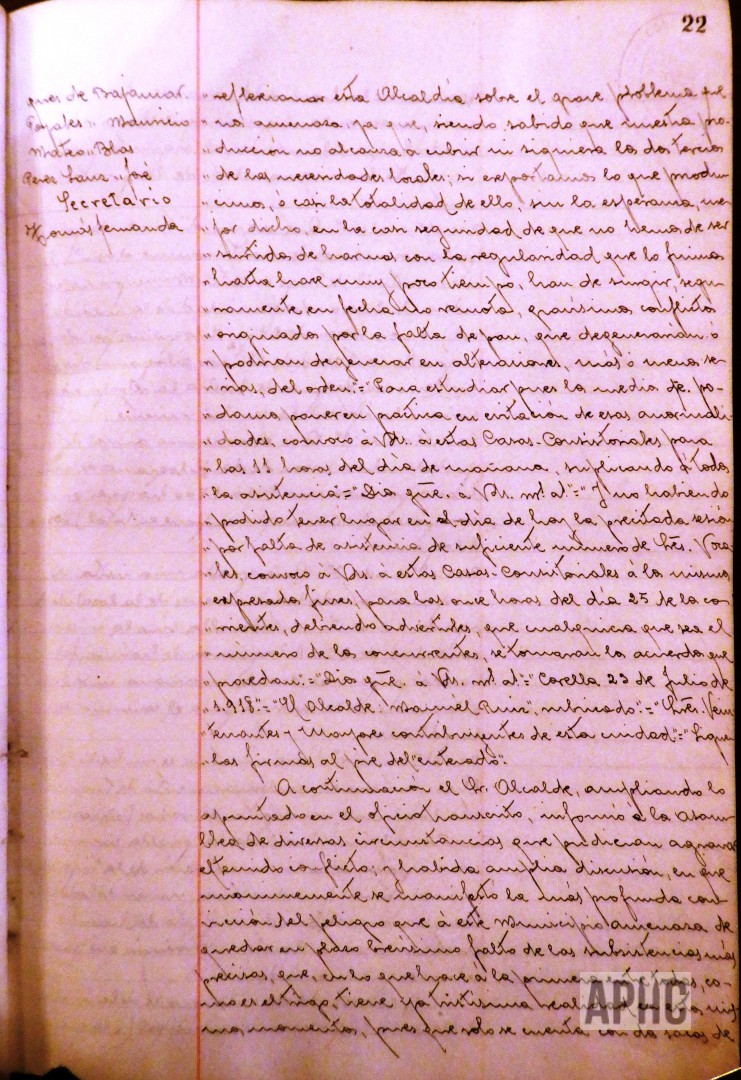 22
ques de Bajamar.
Pozales " Mauricio
Mateo " Blas
Perez Sanz " José
Secretario
Tomás Fernanda
" reflexionar ésta Alcaldía sobre el grave problema que
" nos amenaza, ya que, siendo sabido que nuestra pro-
" ducción no alcanza á cubrir ni siquiera los dos tercios
" de las necesidades locales; si exportamos lo que produ-
" cimos, ó casi la totalidad de ello, sin la esperanza, me-
" jor dicho, en la casi seguridad de que no hemos de ser
" surtidos de harinas con la regularidad que lo fuimos
" hasta hace muy poco tiempo, han de surgir, segu-
" ramente en fecha no remota, gravísimos conflictos
" originados por la falta de pan, que degenerarán ó
" podrian degenerar en alteraciones, más ó menos se-
" rias, del orden." = "Para estudiar pues los medios de po-
" damos poner en práctica en evitación de esas anormali-
" dades, convoco á Vds. á estas Casas-Consistoriales para
" las 11 horas del día de mañana, suplicando á todos
" la asistencia" = "Dios gũe. á Vds. ms. as." = "Y no habiendo
" podido tener lugar en el día de hoy la precitada sesión
" por falta de asistencia de suficiente número de Sres. Voca-
" les, convoco á Vds. á estas Casas-Consistoriales á los mismos
" expresados fines, para las once horas del día 25 de los co-
" rrientes, debiendo advertirles, que cualquiera que sea el
" número de los concurrentes, se tomaran los acuerdos que
" procedan." = "Dios gũe. á Vds. ms. as." = "Corella 23 de Julio de
" 1.918." = "El Alcalde: Manuel Ruiz", rubricado." = "Sres. Vein-
" tenantes y Mayores contribuyentes de esta ciudad" = "Siguen
" las firmas al pie del "enterado".
A continuación el Sr. Alcalde, ampliando lo
apuntado en el oficio transcrito, informó á la Asam-
blea de diversas circunstancias que pudieran agravar
el temido conflicto; y habida amplia discusión, en que
unánimemente se manifestó la más profunda con-
vicción del peligro que á este Municipio amenaza de
quedar en plazo brevísimo falto de las subsistencias más
precisas, que, en lo que hace á la primera de todas, co-
mo es el trigo, tiene ya tristísima realidad en los mis-
mos momentos, pues que solo se cuenta con dos sacos de
APHC